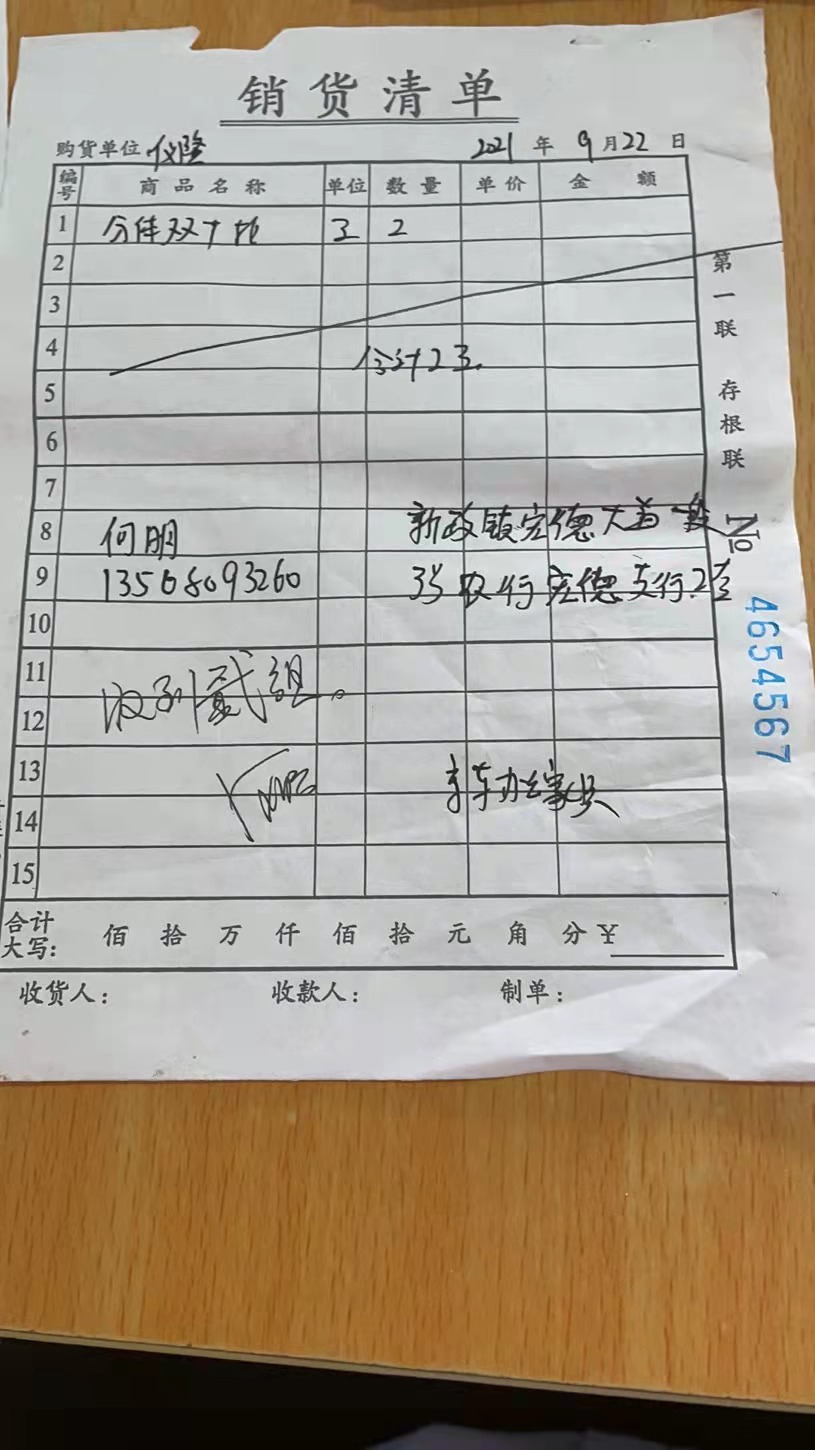 销货清单
购货单位 仪陇 2021 年 9 月 22 日
编号 商品名称 单位 数量 单价 金额
1 分体双 2
2
3
4 合计2
5
6
7
8 何明 新政镇宏德大道一段
9 13568093260 35 农行宏德支行2
10
11 收到 贰组。
12
13 办公家具
14
15
合计大写: 佰 拾 万 仟 佰 拾 元 角 分 ¥
收货人: 收款人: 制单:
第一联 存根联
№ 4654567